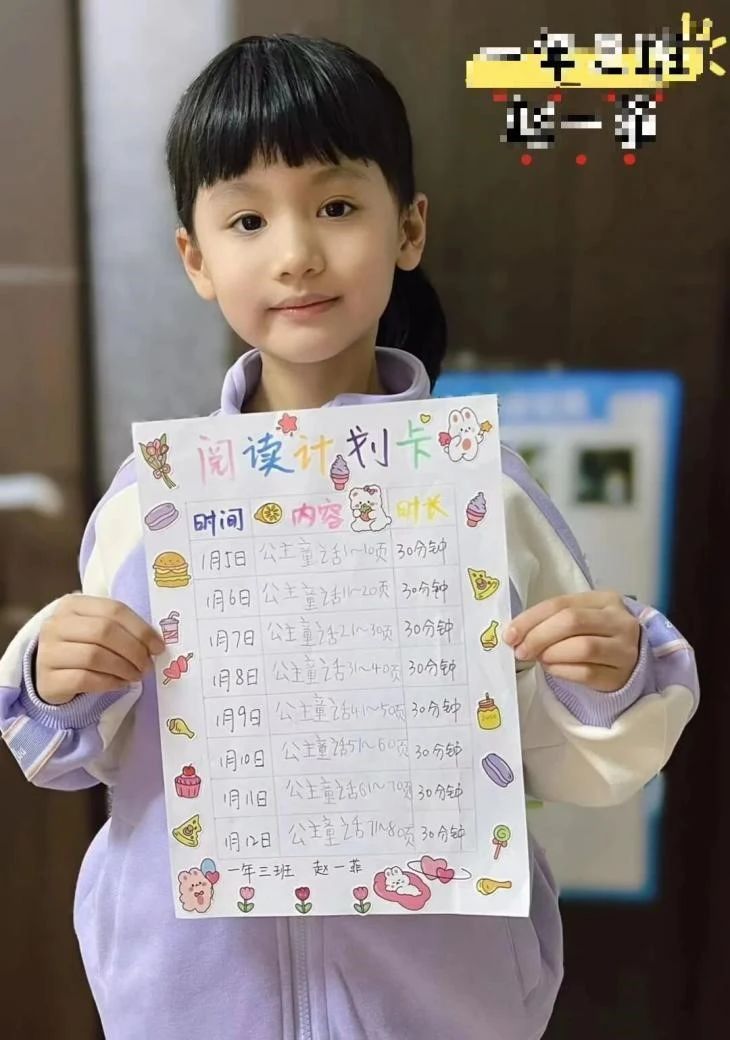 一年三班
赵一菲
阅读计划卡
时间 内容 时长
1月5日 公主童话1~10页 30分钟
1月6日 公主童话11~20页 30分钟
1月7日 公主童话21~30页 30分钟
1月8日 公主童话31~40页 30分钟
1月9日 公主童话41~50页 30分钟
1月10日 公主童话51~60页 30分钟
1月11日 公主童话61~70页 30分钟
1月12日 公主童话71~80页 30分钟
一年三班 赵一菲